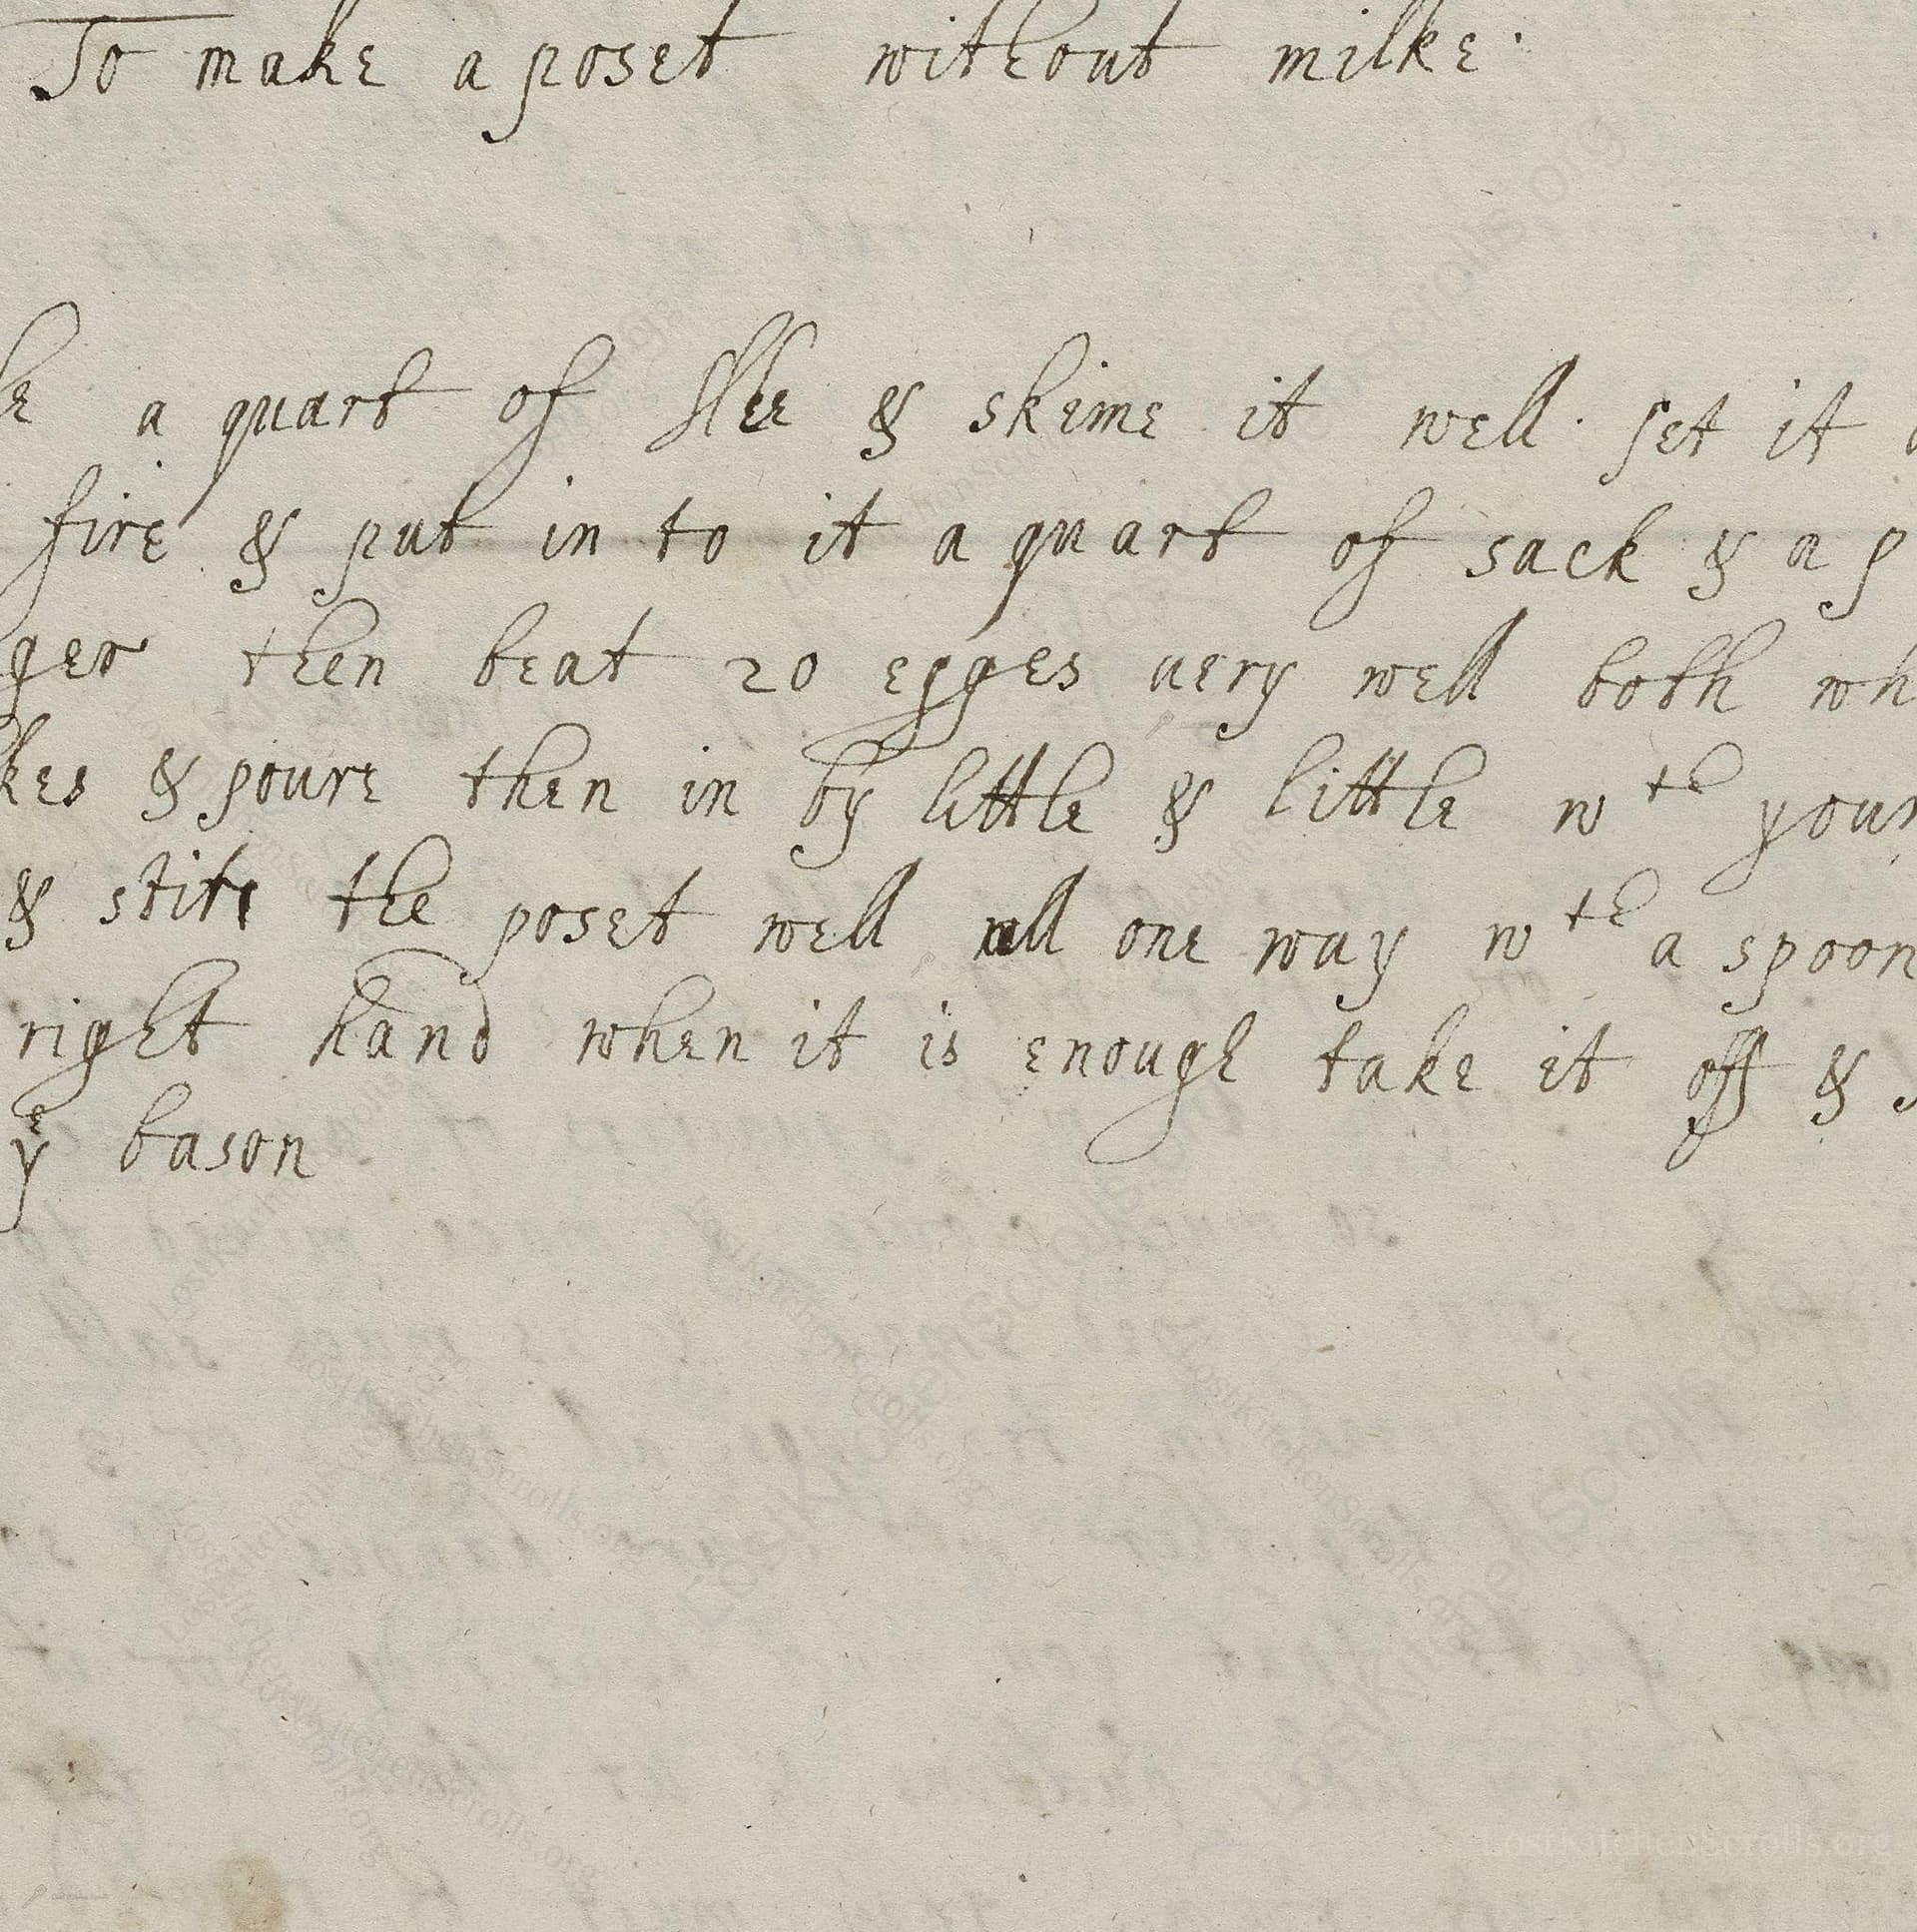 To make a poset without milke.
a quart of Allee & skime it well. set it
fire & put in to it a quart of sack & a p
ger then beat 20 egges uery well both wh
kes & poure then in by little & little wth your
& stir the poset well all one way wth a spoon
right hand when it is enough take it off &
ye bason
LostKitchenScrolls.org